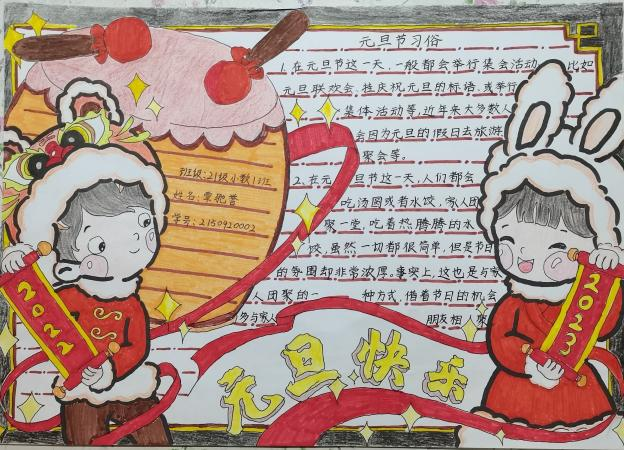 元旦节习俗
1、在元旦节这一天,一般都会举行集会活动 比如
元旦联欢会,挂庆祝元旦的标语,或举行
集体活动等,近年来大多数人
会因为元旦的假日去旅游
聚会等。
2、在元旦节这一天,人们都会
吃汤圆或者水饺,家人团
聚一堂,吃着热腾腾的水
饺,虽然一切都很简单,但是节日
的氛围却非常浓厚,事实上,这也是与家
人团聚的一种方式,借着节日的机会
多与家人 朋友相聚
班级:21级小数1班
学号:2150920002
2022
2023
元旦快乐